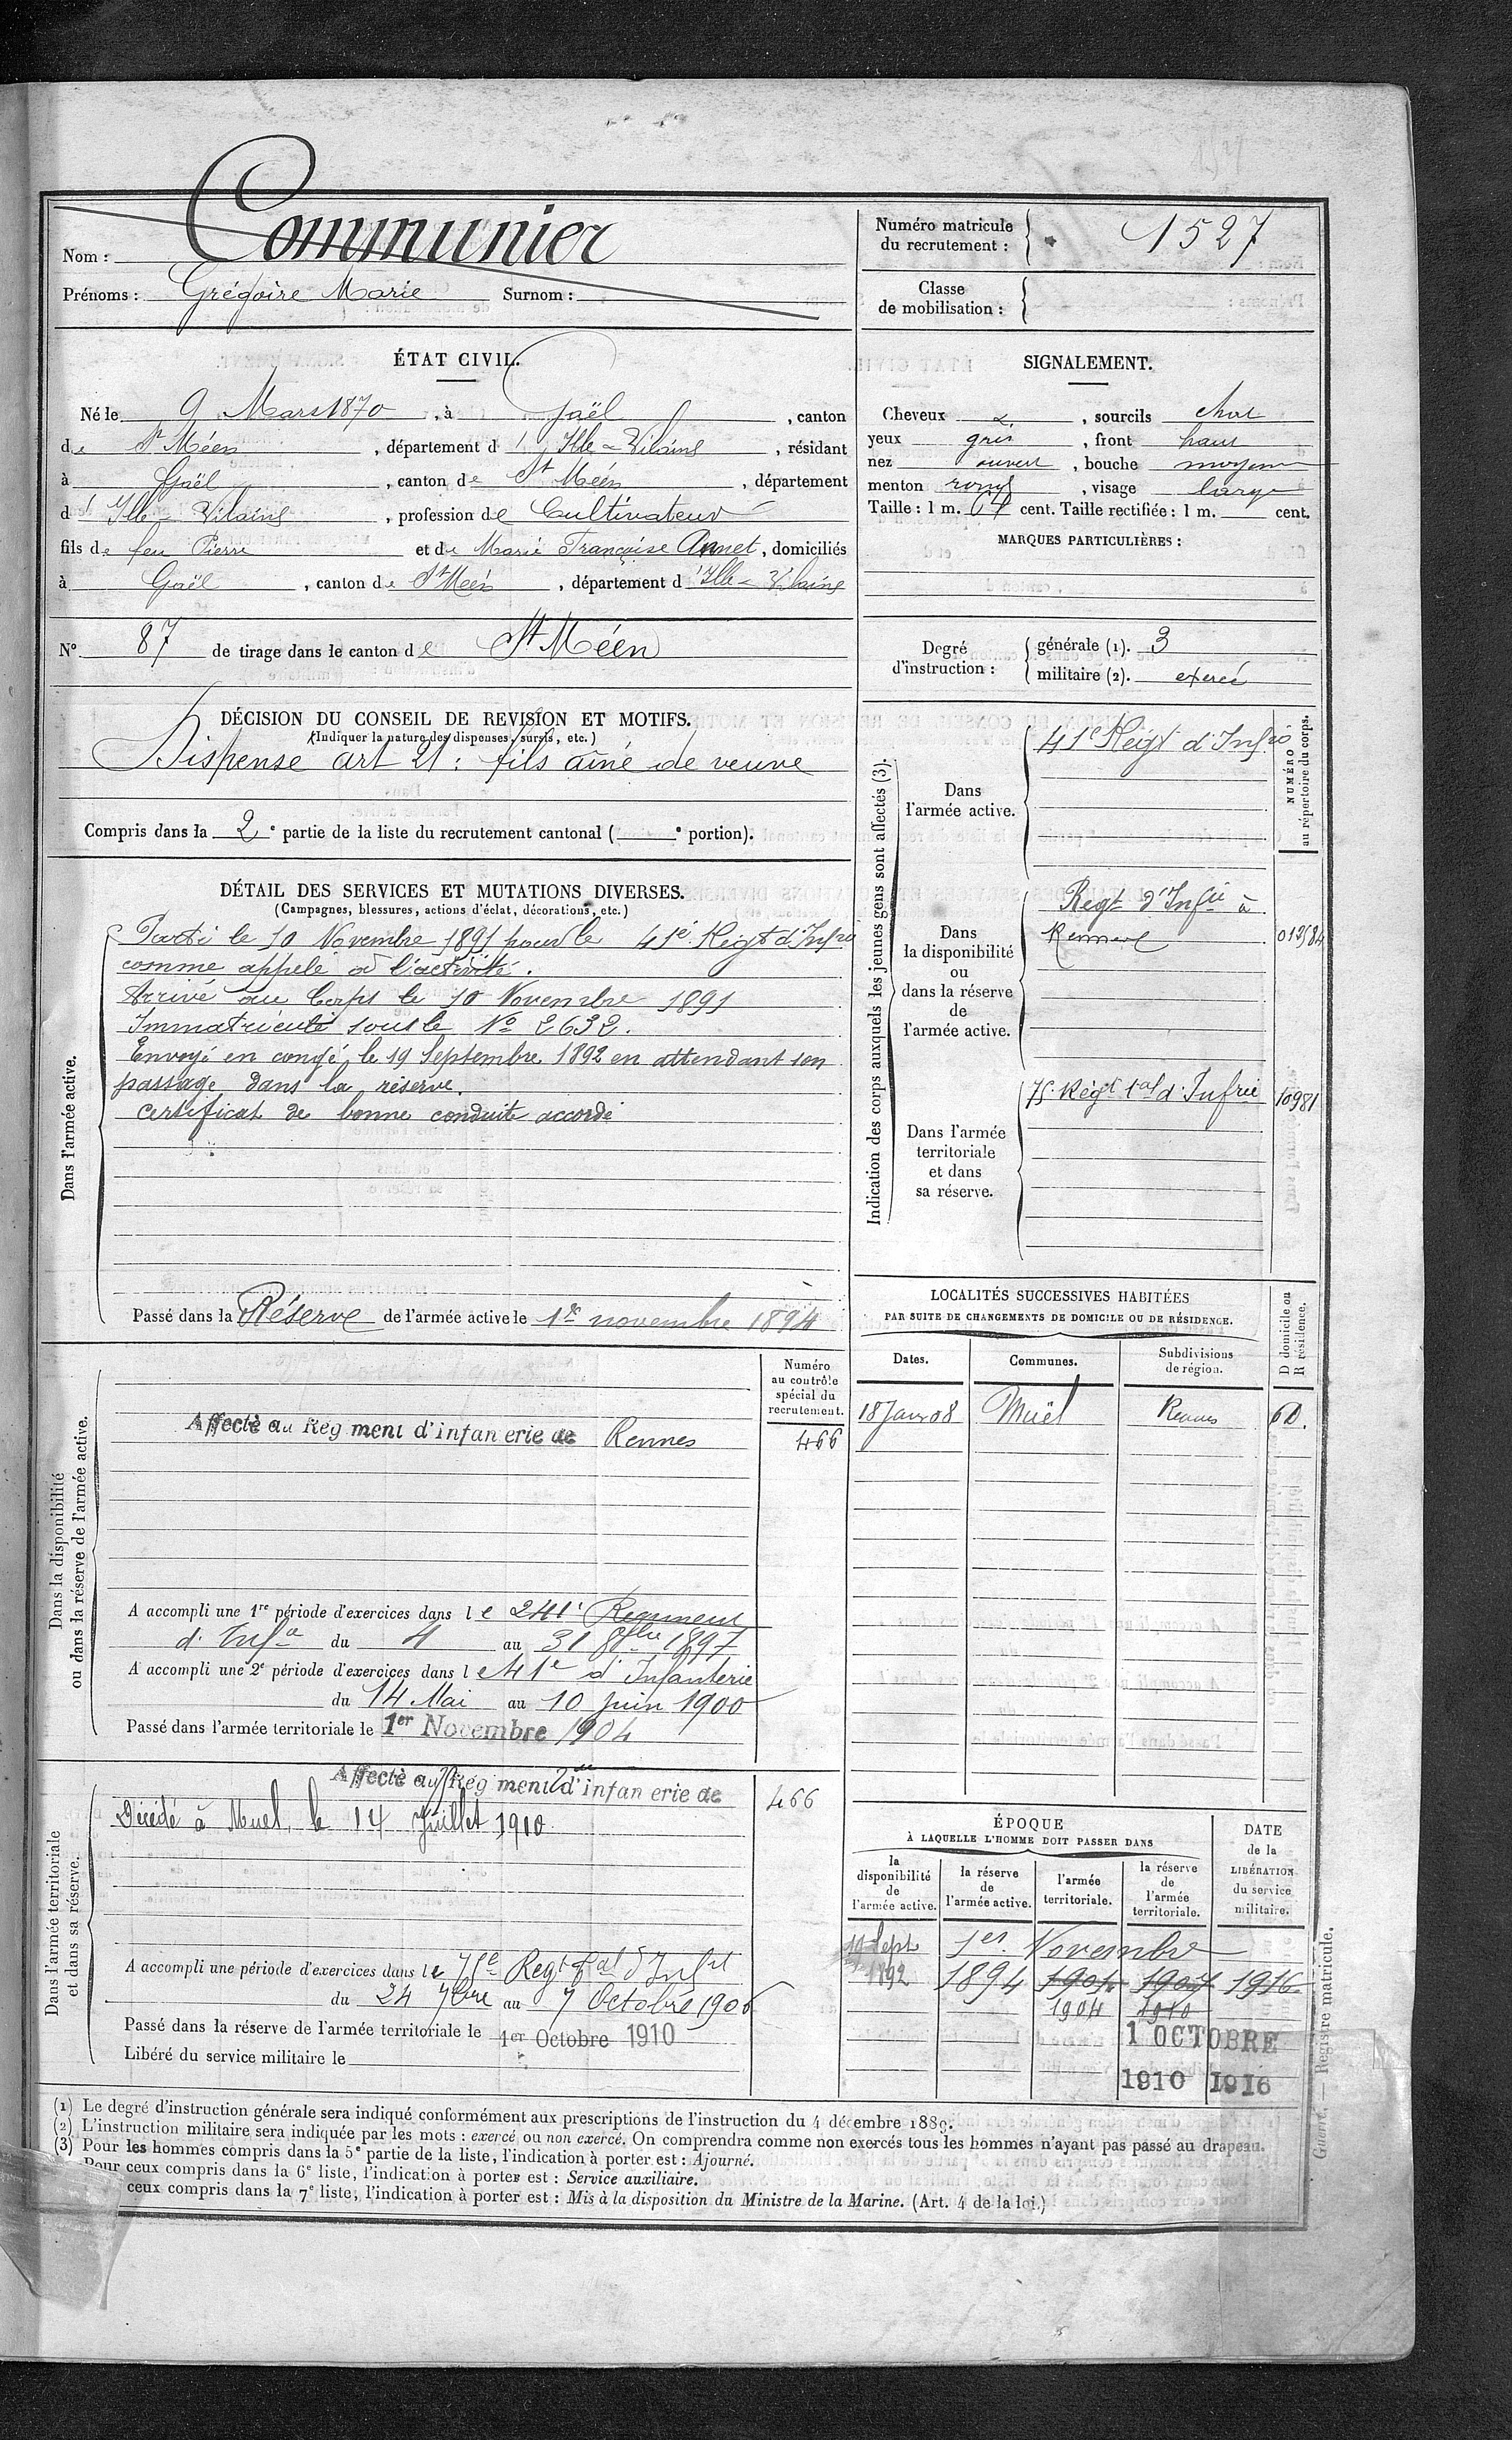 Nom : Communier
Prénoms : Grégoire Marie Surnom :
Numéro matricule du recrutement : 1527
Classe de mobilisation :
ÉTAT CIVIL.
Né le 9 Mars 1870, à Gaël, canton
de St Méen, département d'Ille-Vilaine, résidant
à Gaël, canton de St Méen, département
d'Ille-Vilaine, profession de Cultivateur
fils de feu Pierre et de Marie Françoise Annet, domiciliés
à Gaël, canton de St Méen, département d'Ille-Vilaine
N° 87 de tirage dans le canton de St Méen
SIGNALEMENT.
Cheveux, sourcils chat
yeux gris, front haut
nez ouvert, bouche moyenne
menton rond, visage large
Taille : 1 m. 67 cent. Taille rectifiée : 1 m. cent.
MARQUES PARTICULIÈRES :
Degré d'instruction : générale (1). 3
militaire (2). exercé
DÉCISION DU CONSEIL DE REVISION ET MOTIFS.
(Indiquer la nature des dispenses, sursis, etc.)
Dispense art 21 : fils aîné de veuve
Compris dans la 2e partie de la liste du recrutement cantonal ( e portion).
DÉTAIL DES SERVICES ET MUTATIONS DIVERSES.
(Campagnes, blessures, actions d'éclat, décorations, etc.)
Dans l'armée active.
Parti le 10 Novembre 1891 pour le 41e Régt d'Infie
comme appelé à l'activité.
Arrivé au Corps le 10 Novembre 1891
Immatriculé sous le No 2632.
Envoyé en congé, le 19 Septembre 1892 en attendant son
passage dans la réserve.
certificat de bonne conduite accordé
Passé dans la Réserve de l'armée active le 1er novembre 1894
Indication des corps auxquels les jeunes gens sont affectés (3).
NUMÉRO au répertoire du corps.
Dans l'armée active.
41e Régt d'Infie
Dans la disponibilité ou dans la réserve de l'armée active.
Regt d'Infie à
Rennes
Dans l'armée territoriale et dans sa réserve.
75e Régt tal d'Infrie 10981
LOCALITÉS SUCCESSIVES HABITÉES
PAR SUITE DE CHANGEMENTS DE DOMICILE OU DE RÉSIDENCE.
Dates. Communes. Subdivisions de région. D domicile ou R résidence.
18 Janv 08 Muël Rennes D.
Dans la disponibilité ou dans la réserve de l'armée active.
Numéro au contrôle spécial du recrutement.
Affecté au Rég ment d'infan erie de Rennes 466
A accompli une 1re période d'exercices dans le 241e Régiment
d'Infie du 4 au 31 8bre 1897
A accompli une 2e période d'exercices dans le 41e d'Infanterie
du 14 Mai au 10 juin 1900
Passé dans l'armée territoriale le 1er Novembre 1904
Dans l'armée territoriale et dans sa réserve.
Affecté au Rég ment d'infan erie de 466
Décédé à Muel, le 14 Juillet 1910
A accompli une période d'exercices dans le 75e Regt tal d'Infie
du 24 7bre au 7 Octobre 1906
Passé dans la réserve de l'armée territoriale le 1er Octobre 1910
Libéré du service militaire le
ÉPOQUE
À LAQUELLE L'HOMME DOIT PASSER DANS
DATE de la LIBÉRATION du service militaire.
la disponibilité de l'armée active. la réserve de l'armée active. l'armée territoriale. la réserve de l'armée territoriale.
19 Sept 1er Novembre
1892 1894 1901 1907 1916
1904 1910
1 OCTOBRE
1910 1916
Guerre. — Registre matricule.
(1) Le degré d'instruction générale sera indiqué conformément aux prescriptions de l'instruction du 4 décembre 1889.
(2) L'instruction militaire sera indiquée par les mots : exercé ou non exercé. On comprendra comme non exercés tous les hommes n'ayant pas passé au drapeau.
(3) Pour les hommes compris dans la 5e partie de la liste, l'indication à porter est : Ajourné.
Pour ceux compris dans la 6e liste, l'indication à porter est : Service auxiliaire.
ceux compris dans la 7e liste, l'indication à porter est : Mis à la disposition du Ministre de la Marine. (Art. 4 de la loi.)